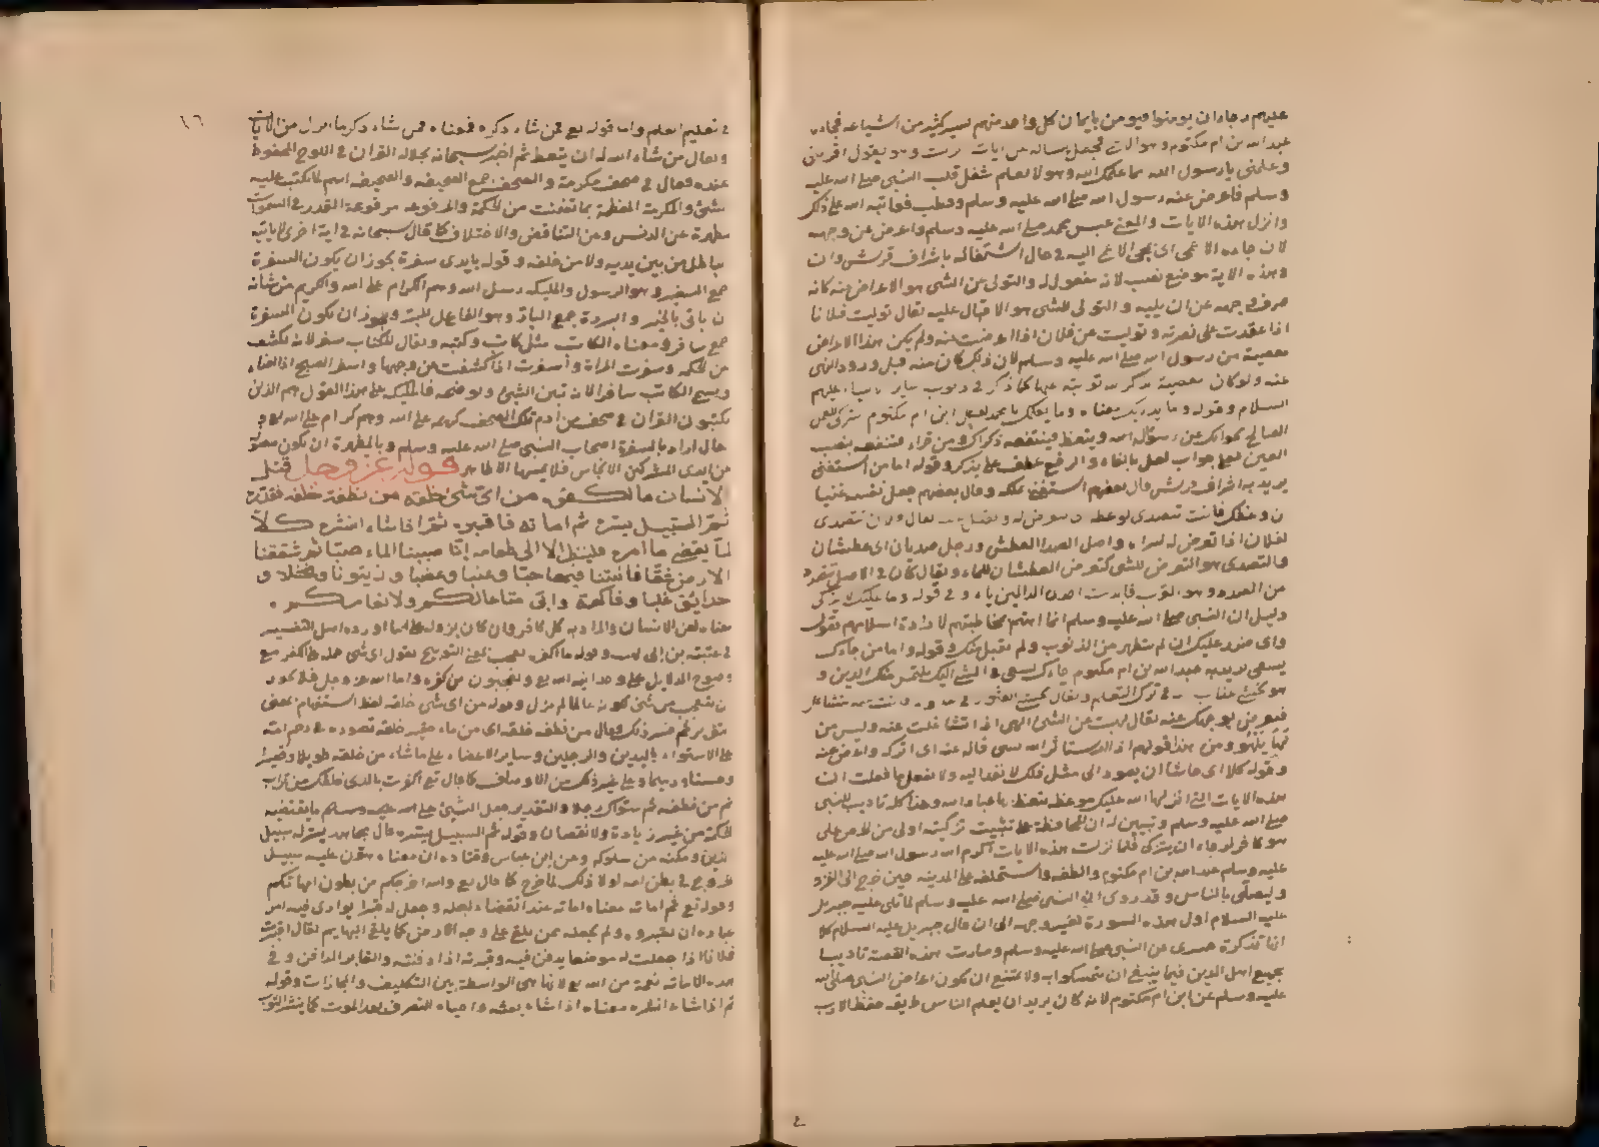 عليهم رجاء ان يومنوا فيومن بايمان كل واحد منهم نفر كثير من اشياعه فجاءه
عبد الله بن ام مكتوم وهو الذي فجعل يساله عن ايات نزلت وهو يقول اقرئني
وعلمني يا رسول الله مما علمك الله وهو لا يعلم شغل قلب النبي صلى الله عليه
وسلم فاعرض عنه رسول الله صلى الله عليه وسلم وقطب فعاتبه الله على ذلك
وانزل هذه الايات والمعنى عبس محمد صلى الله عليه وسلم واعرض عن وجهه
لان جاءه الاعمى اي لمجي الاعمى اليه في حال اشتغاله باشراف قريش وان
وهذه الاية موضع نصب لانه مفعول له والتولي عن الشي هو الاعراض عنه كانه
صرف وجهه عن ان يليه والتولي للشي هو الاقبال عليه يقال توليت فلانا
اذا عقدت على نصرته وتوليت عن فلان اذا اعرضت عنه ولم يكن هذا الاعراض
معصية من رسول الله صلى الله عليه وسلم لان ذلك كان منه قبل ورود النهي
عنه ولو كان معصية لذكر الله توبته عنها كما ذكر في ذنوب ساير الانبياء عليهم
السلام وقوله وما يدريك معناه وما يعلمك يا محمد لعل ابن ام مكتوم يتزكى للعمل
الصالح بجوابك عن سؤاله او يتعظ فينتفعه ذكراك ومن قراء فتنفعه بنصب
العين فعلى جواب لعل بالفاء والرفع عطف على يذكر وقوله اما من استغنى
يريد به اشراف قريش قال بعضهم استغنى بماله وقال بعضهم جعل نفسه غنيا
عن وعظك فانت تتصدى لوعظه وتعرض له يقال فلان تصدى
لفلان اذا تعرض له ليراه واصل الصدا العطش ورجل صديان اي عطشان
والتصدي هو التعرض للشي كتعرض العطشان للماء ويقال كان في الاصل تتصدد
من الصدد وهو القرب فابدلت احدى الدالين ياء وفي قوله وما عليك الا يزكى
دليل ان النبي صلى الله عليه وسلم انما اهتم بمخاطبتهم لارادة اسلامهم يقول
واي ضرر عليك ان لم يتطهر من الذنوب ولم يقبل منك وقوله واما من جاءك
يسعى يريد به عبد الله بن ام مكتوم جاءك يسعى في المشي اليك يلتمس منك الدين و
هو يخشى عذاب في ترك التعلم ويقال يخشى العثور فانت عنه تتشاغل
فتعرض بوجهك عنه يقال لهيت عن الشي الهى اذا تشاغلت عنه وليس من
لها يلهو ومن هذا قولهم اذا استاثر الله بشي فاله عنه اي اتركه واعرض عنه
وقوله كلا اي حاشا ان يعود الى مثل ذلك لا تعد اليه ولا تفعل ما فعلت ان
هذه الايات التي انزلها الله عليك موعظة يتعظ بها عباد الله وهذا كله تاديب للنبي
صلى الله عليه وسلم وتبيين له ان المحافظة على تثبيت تزكيته اولى من الحرص على
من هو كافر لرجاء ان يتزكى فلما نزلت هذه الايات اكرم الله رسول الله صلى الله عليه
عليه وسلم عبد الله بن ام مكتوم والطفه واستخلفه على المدينة حين خرج الى الغزو
وليصلي بالناس وقد روي ان النبي صلى الله عليه وسلم لما تلى عليه جبريل
عليه السلام اول هذه السورة تغير وجهه الى ان قال جبريل عليه السلام كلا
انها تذكرة فسري عن النبي صلى الله عليه وسلم وصارت هذه القصة تاديبا
لجميع اهل الدين فيما ينبغي ان يتمسكوا به ولا يمتنع ان يكون اعراض النبي صلى الله
عليه وسلم عن ابن ام مكتوم لانه كان يريد ان يعلم الناس طريقة حفظ الادب
١٦
في تعليم العلم واما قوله تع فمن شاء ذكره فمعناه فمن شاء ذكر ما انزل من الايات
ويقال من شاء الله له ان يتعظ ثم اخبر سبحانه بجلالة القران في اللوح المحفوظ
عنده وقال في صحف مكرمة والصحف جمع الصحيفة والصحيفة اسم لما يكتب عليه
شي والمكرمة المعظمة بما تضمنت من الحكمة والمرفوعة مرفوعة القدر في السموات
مطهرة عن الدنس وعن التناقض والاختلاف كما قال سبحانه في اية اخرى لا ياتيه
الباطل من بين يديه ولا من خلفه وقوله بايدي سفرة يجوز ان يكون السفرة
جمع السفير وهو الرسول والمليكة رسل الله وهم الكرام على الله والكريم من شانه
ان ياتي بالخير والبررة جمع البار وهو الفاعل للبر ويجوز ان يكون السفرة
جمع سافر ومعناه الكاتب مثل كاتب وكتبة ويقال للكتاب سفر لانه يكشف
عن الحكمة وسفرت المراة واسفرت اذا كشفت عن وجهها واسفر الصبح اذا اضاء
ويسمى الكاتب سافرا لانه تبين الشي ويوضحه فالمليكة على هذا القول هم الذين
يكتبون القران في صحف من ادم تلك الصحف كريمة على الله وهم كرام على الله تع و
قال اراد بالسفرة اصحاب النبي صلى الله عليه وسلم وبالمطهرة ان يكون مصونة
عن ايدي المشركين الانجاس فلا يمسها الا طاهر قوله عز وجل قتل
الانسان ما اكفره من اي شي خلقه من نطفة خلقه فقدره
ثم السبيل يسره ثم اماته فاقبره ثم اذا شاء انشره كلا
لما يقض ما امره فلينظر الانسان الى طعامه انا صببنا الماء صبا ثم شققنا
الارض شقا فانبتنا فيها حبا وعنبا وقضبا وزيتونا ونخلا و
حدايق غلبا وفاكهة وابا متاعا لكم ولانعامكم .
معناه لعن الانسان والمراد به كل كافر وان كان نزوله على ما اورده اهل التفسير
في عتبة بن ابي لهب وقوله ما اكفره تعجب بمعنى التوبيخ يقول اي شي حمله على الكفر مع
وضوح الدلايل على وحدانية الله تع وتعجبون من كفره واما الله عز وجل فلا يجوز
ان يتعجب من شي لكونه عالما لم يزل وقوله من اي شي خلقه لفظ استفهام بمعنى
التقرير ثم فسر ذلك وقال من نطفة خلقه اي من ماء حقير خلقه تصوره في رحم امه
على الاستواء باليدين والرجلين وساير الاعضاء على ما شاء من خلقه طويلا وقصيرا
وحسنا ودميما وعلى غير ذلك من الاوصاف كما قال تع اكفرت بالذي خلقك من تراب
ثم من نطفة ثم سواك رجلا والتقدير جعل الشي على ما تقتضيه
الحكمة من غير زيادة ولا نقصان وقوله ثم السبيل يسره قال مجاهد يسر له سبيل
الدين ومكنه من سلوكه وعن ابن عباس وقتادة ان معناه هون عليه سبيل
الخروج في بطن امه لولا ذلك لما خرج كما قال تع والله اخرجكم من بطون امهاتكم
وقوله تع ثم اماته معناه اماته عند انقضاء اجله وجعل له قبرا يوارى فيه امر
عباده ان تقبروه ولم يجعله ممن يلقى على وجه الارض كما يلقى البهايم يقال اقبرت
فلانا اذا جعلت له موضعا يدفن فيه وقبرته اذا دفنته والقابر الدافن وفي
هذه الاماتة نعمة من الله تع لانها هي الواسطة بين التكليف والمجازات وقوله
ثم اذا شاء انشره معناه اذا شاء بعثه واحياه للتصرف بعد الموت كما ينشر الثوب